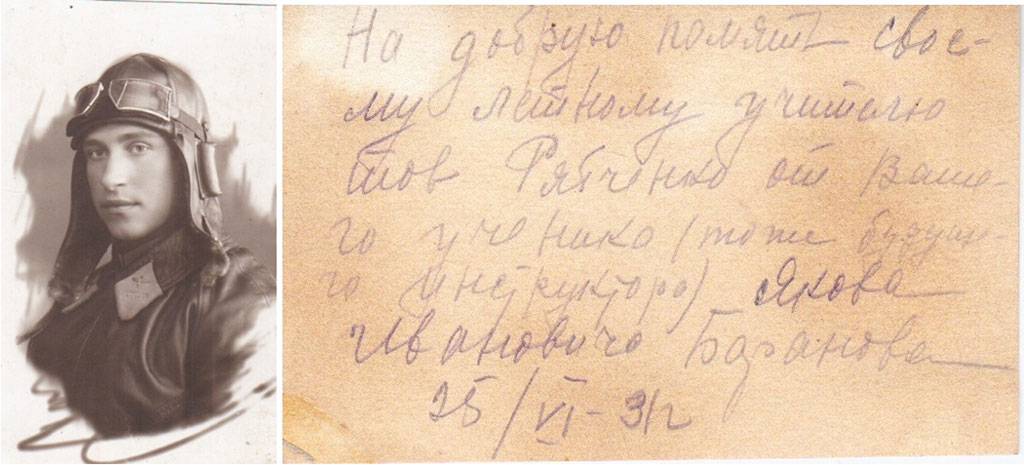 На добрую помять свое-
му летному учителю
тов Рябченко от Ваше-
го ученика (тоже будущи-
го инструктора) Якова
Ивановича Базанова
25/VI-31г